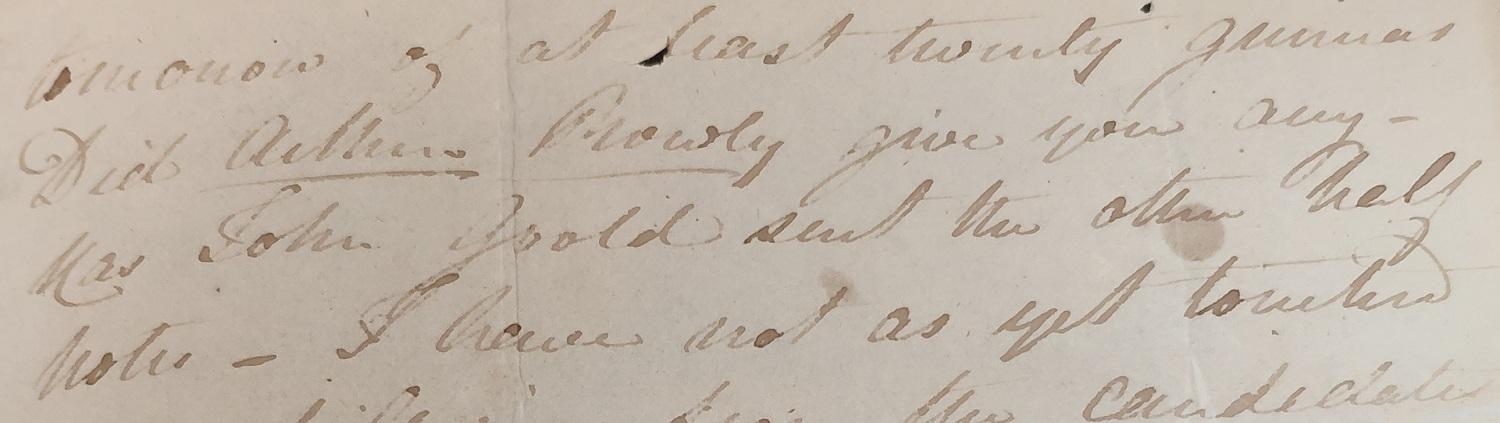 tomorrow of at least twenty guineas
Did Arthur give you any -
Has John Goold sent the other half
notes - I have not as yet touched
the candidates